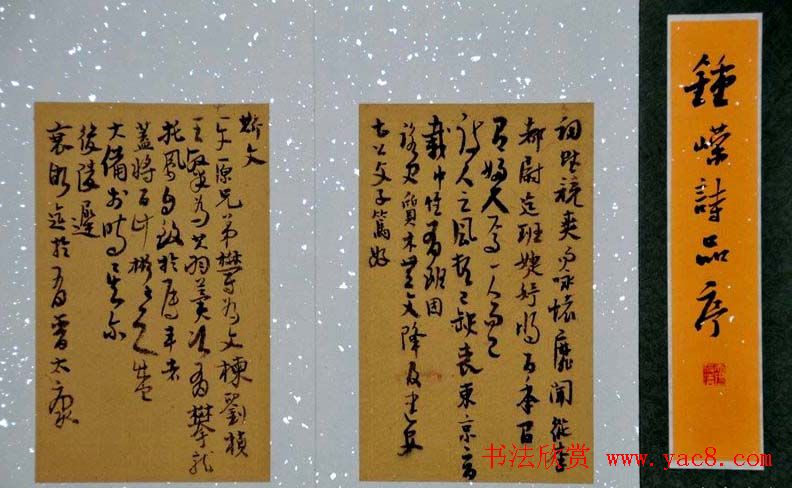 鍾嶸詩品序
詞賦競爽而吟詠靡聞從李
都尉迄班婕妤將百年間
有婦人焉一人而已
詩人之風頓已缺喪東京二百
載中惟有班固
詠史質木無文降及建安
曹公父子篤好
斯文
平原兄弟鬱為文棟劉楨
王粲為其羽翼次有攀龍
托鳳自致於屬車者
蓋將百計彬彬之盛
大備於時矣爾
後陵遲
衰微迄於有晉太康
书法欣赏 www.yac8.com